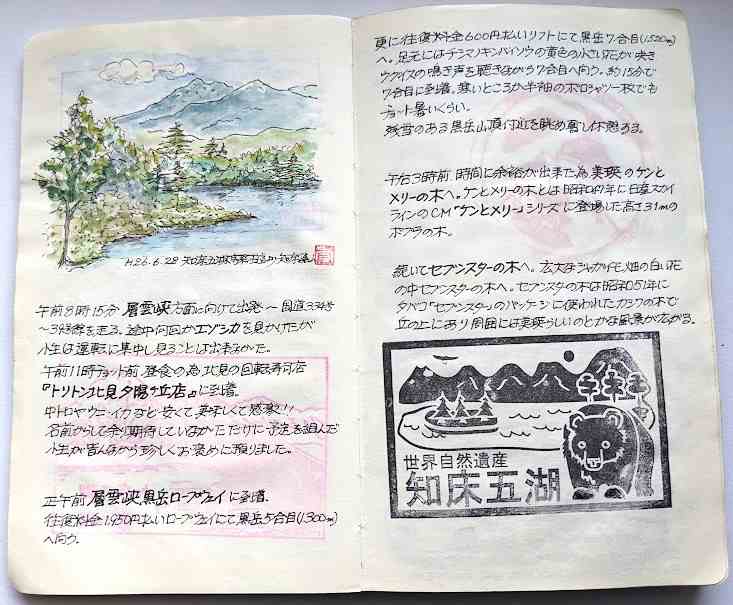 H26.6.28 知床五湖
午前8時15分 層雲峡方面に向けて出発〜国道334号
小生は運転に集中し見ることは出来なかった。
午前11時チョット前 昼食の為 北見の回転寿司店
『トリトン北見夕陽ヶ丘店』に到着。
中トロやウニ・イクラなど安くて、美味しくて感激!!
名前からして余り期待していなかただけに予定を組んだ
小生が皆んなから珍しくお褒めに預りました。
正午前 層雲峡黒岳ロープウェイに到着。
往復料金1,950円払いロープウェイにて、黒岳5合目(1,300m)
へ向う。
更に往復料金600円払いリフトにて黒岳7合目(1,520m)
へ。足元にはチシマノキンバイソウの黄色の小さい花が咲き
ウグイスの鳴き声を聴きながら7合目へ向う。約15分で
7合目に到着。寒いところか半袖のポロシャツ一枚でも
チョット暑いくらい。
残雪のある黒岳山頂付近を眺め暫し休憩する。
午后3時前 時間に余裕が出来た為 美瑛のケンと
メリーの木へ。ケンとメリーの木とは昭和47年に日産スカイ
ラインのCM「ケンとメリー」シリーズに登場した高さ31mの
ポプラの木。
続いてセブンスターの木へ。広大なジャガイモ畑の白い花
の中セブンスターの木へ。セブンスターの木は昭和51年に
タバコ「セブンスター」のパッケージに使われたカシワの木で
丘の上にあり周囲には美瑛らしいのどかな風景が広がる。
世界自然遺産
知床五湖